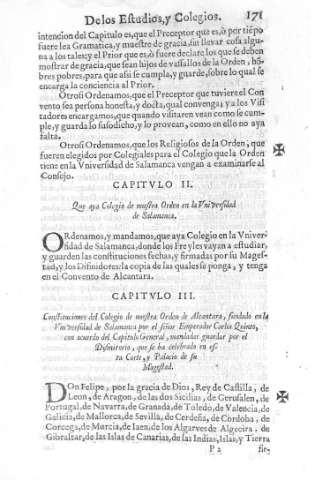 De los Estudios, y Colegios. 171
intencion del Capitulo es, que el Preceptor que es, ò por tiẽpo
fuere lea Gramatica, y muestre de gracia, sin llevar cosa algu-
na a los tales; y el Prior que es, ò fuere declare los que se deben
mostrar de gracia, que sean hijos de vassallos de la Orden, hõ-
bres pobres, para que assi se cumpla, y guarde, sobre lo qual se
encarga la conciencia al Prior.
Otrosi Ordenamos, que el Preceptor que tuviere el Con
vento sea persona honesta, y docta, qual convenga; y a los Visi
tadores encargamos, que quando visitaren vean como se cum-
ple, y guarda lo susodicho, y lo provean, como en ello no aya
falta.
Otrosi Ordenamos, que los Religiosos de la Orden, que
fueren elegidos por Colegiales para el Colegio que la Orden
tiene en la Universidad de Salamanca vengan a examinarse al
Consejo.
CAPITVLO II.
Que aya Colegio de nuestra Orden en la Vniversidad
de Salamanca.
ORdenamos, y mandamos, que aya Colegio en la Vniver-
sidad de Salamanca, donde los Freyles vayan a estudiar,
y guarden las constituciones fechas, y firmadas por su Mages-
tad, y los Difinidores: la copia de las quales se ponga, y tenga
en el Convento de Alcantara.
CAPITVLO III.
Constituciones del Colegio de nuestra Orden de Alcantara, fundado en la
Vniversidad de Salamanca por el señor Emperador Carlos Quinto,
con acuerdo del Capitulo General, mandadas guardar por el
Difinitorio, que se ha celebrado en es-
ta Corte, y Palacio de su
Magestad.
DOn Felipe, por la gracia de Dios, Rey de Castilla, de
Leon, de Aragon, de las dos Sicilias, de Gerusalen, de
Portugal, de Navarra, de Granada, de Toledo, de Valencia, de
Galicia, de Mallorca, de Sevilla, de Cerdeña, de Cordoba, de
Corcega, de Murcia, de Iaen, de los Algarves de Algecira, de
Gibraltar, de las Islas de Canarias, de las Indias, Islas, y Tierra
P 2 fir-